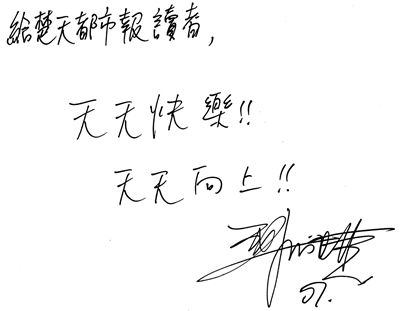 給楚天都市報讀者,
天天快樂!!
天天向上!!
07.